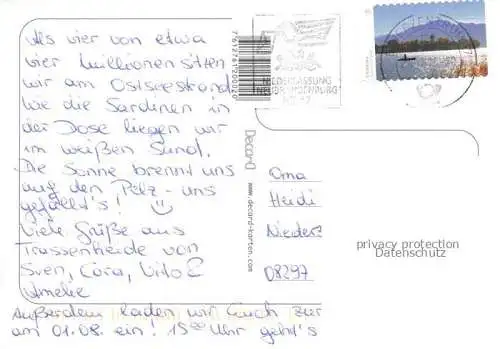 Als vier von etwa
vier Millionen sitzen
wir am Ostseestrand
Wie die Sardinen in
der Dose liegen wir
im weißen Sand.
Die Sonne brennt uns
auf den Pelz - uns
gefällt's!
Viele Grüße aus
Trassenheide von
Sven, Cora, Vito &
Amelie
Außerdem laden wir Euch zur
am 01.08. ein! 15⁰⁰ Uhr geht's
7612761200020
NIEDERLASSUNG
NEUBRANDENBURG
DecarD
www.decard-karten.com
Oma
Heidi
08297
privacy protection
Datenschutz